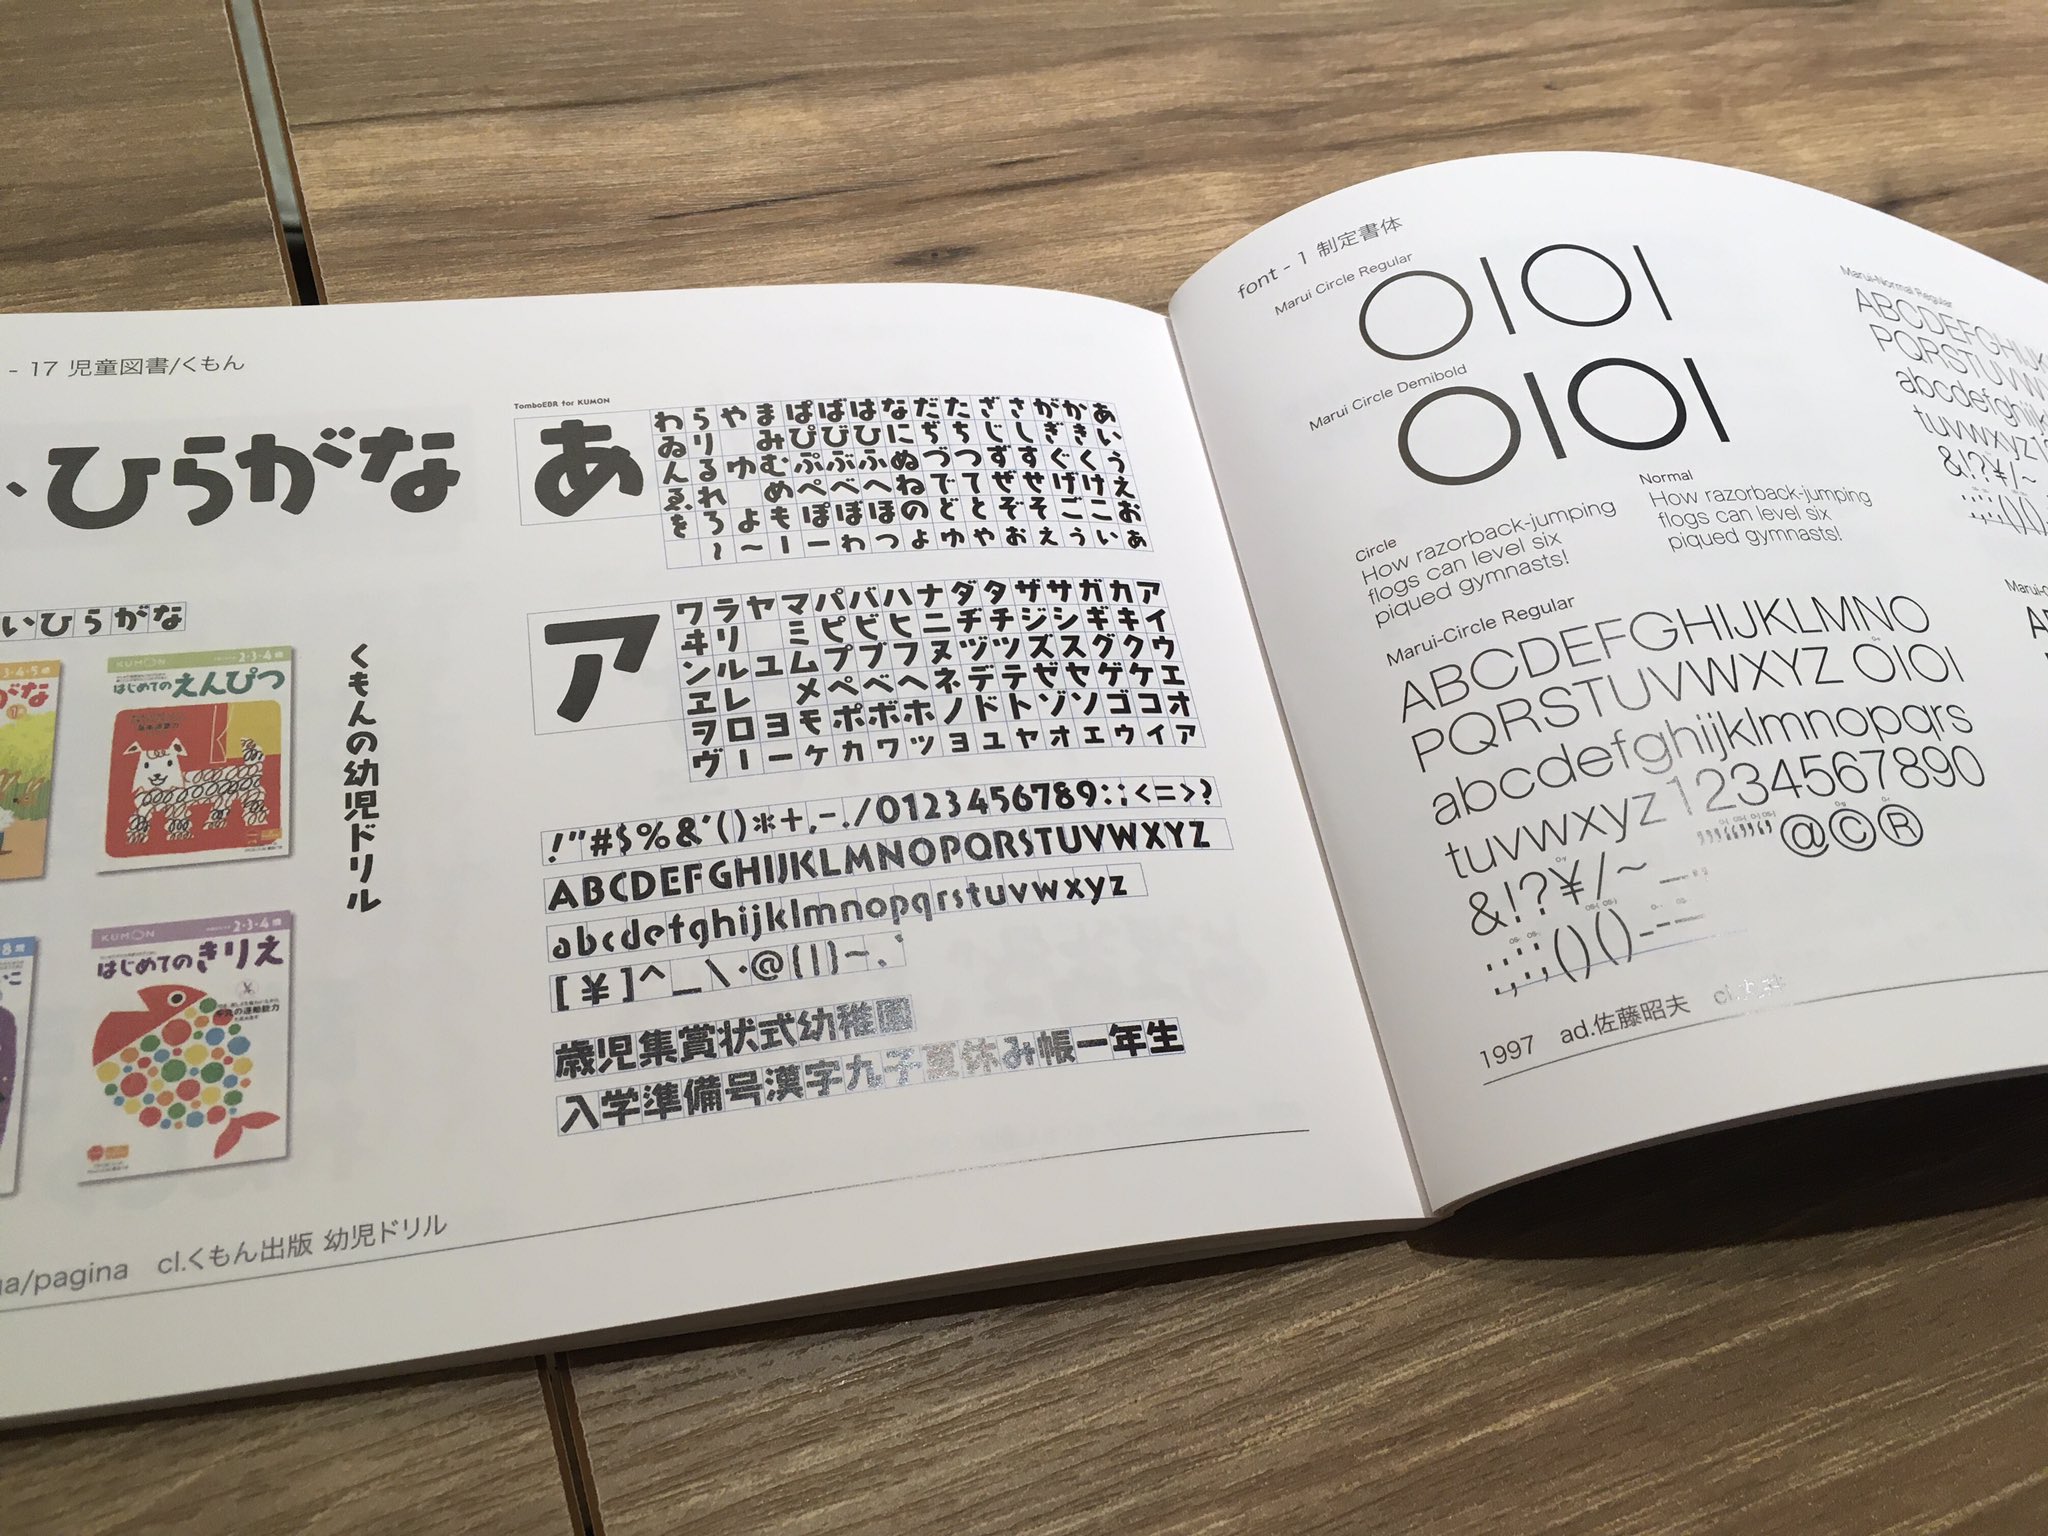 - 17 児童図書/くもん
ひらがな
いひらがな
3・4・5歳
がな
KUMON
2・3・4歳
はじめてのえんぴつ
KUMON
2・3・4歳
はじめてのきりえ
くもんの幼児ドリル
/pagina cl.くもん出版 幼児ドリル
TomboEBR for KUMON
あ
わらやまぱばはなだたざさがかあ
ゐり みぴびひにぢちじしぎきい
んるゆむぷぶふぬづつずすぐくう
ゑれ めぺべへねでてぜせげけえ
をろよもぽぼほのどとぞそごこお
〜ーわつよゆやおえういあ
ア
ワラヤマパバハナダタザサガカア
ヰリ ミピビヒニヂチジシギキイ
ンルユムプブフヌヅツズスグクウ
ヱレ メペベヘネデテゼセゲケエ
ヲロヨモポボホノドトゾソゴコオ
ヴーーヶヵヮッョュャォェゥィァ
!"#$%&'()*+,-./0123456789:;<=>?
ABCDEFGHIJKLMNOPQRSTUVWXYZ
abcdefghijklmnopqrstuvwxyz
[¥]^_\·@{|}~、`
歳児集賞状式幼稚園
入学準備号漢字九子夏休み帳一年生
font - 1 制定書体
Marui Circle Regular
OIOI
Marui Circle Demibold
OIOI
Circle
How razorback-jumping
flogs can level six
piqued gymnasts!
Normal
How razorback-jumping
flogs can level six
piqued gymnasts!
Marui-Circle Regular
ABCDEFGHIJKLMNO
PQRSTUVWXYZ OIOI
abcdefghijklmnopqrs
tuvwxyz1234567890
&!?¥/~
@©®
:;()()
1997 ad.佐藤昭夫 cl.
Marui-Normal Regular
ABCDEFGHIJK
PQRSTUVW
abcdefghijk
tuvwxyz12
&!?¥/~